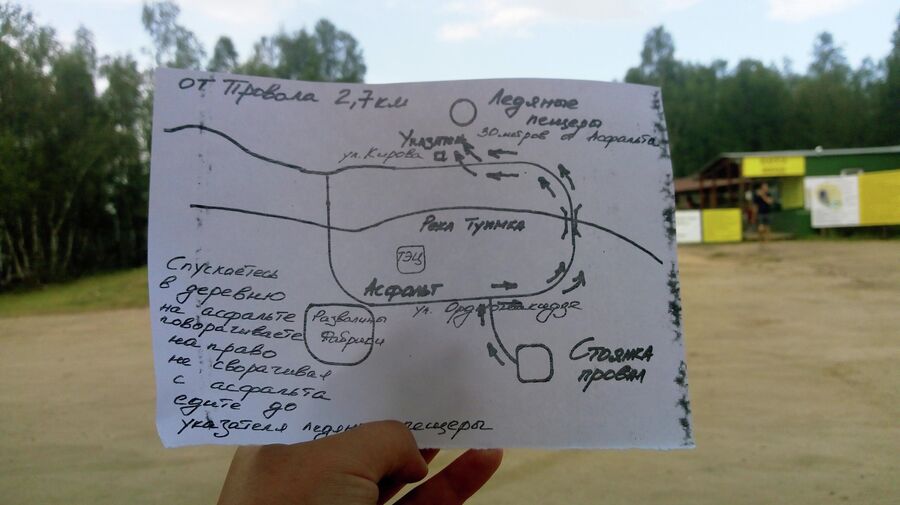 от Провала 2,7 км
Ледяные
пещеры
30 метров от Асфальта
Указатель
ул. Кирова
Река Тунка
ТЭЦ
Асфальт
ул. Орджоникидзе
Развалины
Фабрики
Стоянка
провал
Спускаетесь
в деревню
на асфальте
поворачиваете
на право
не сворачивая
с асфальта
едите до
указателя ледяные пещеры